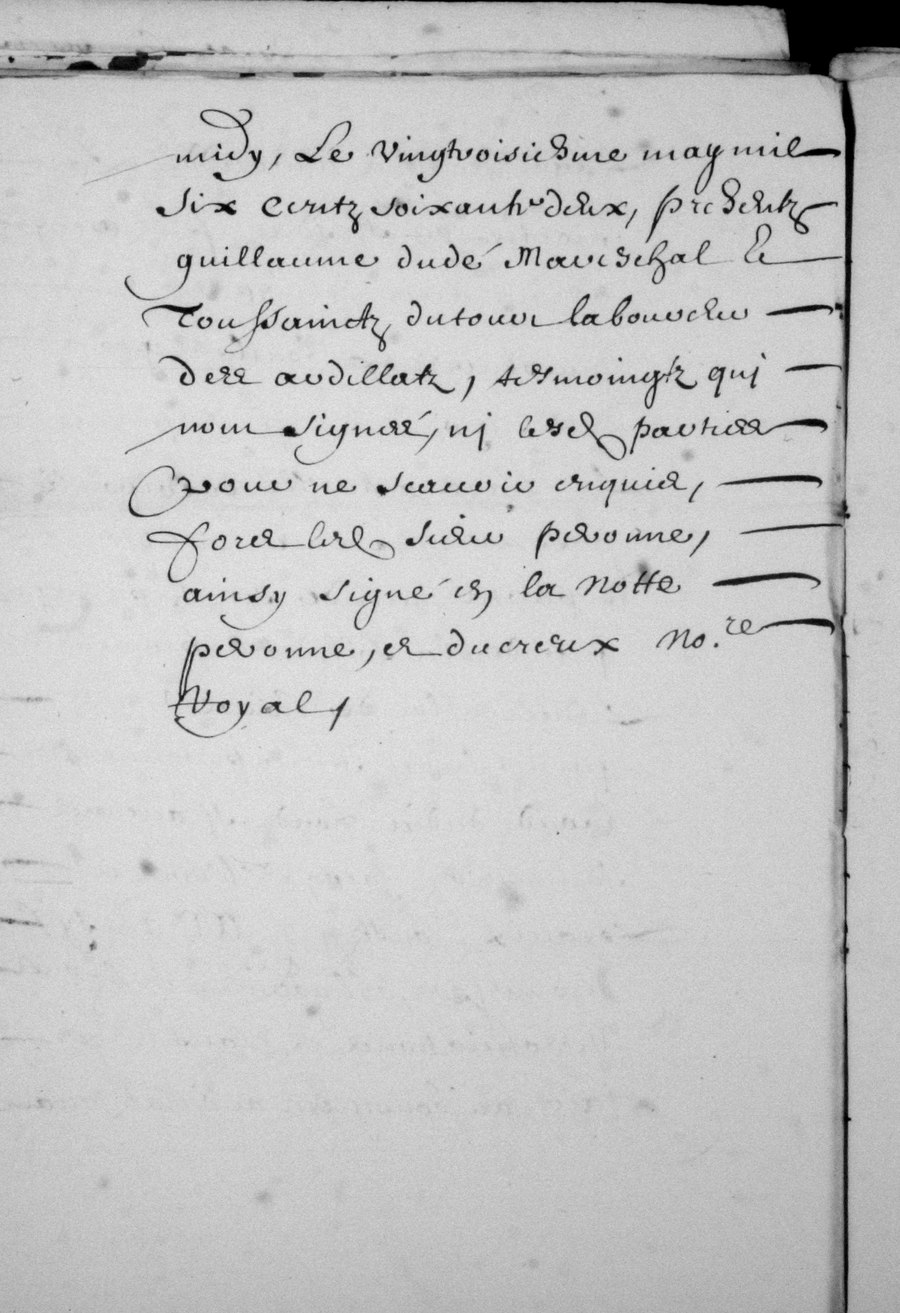 midy, Le vingtroisiesme may mil
six centz soixante deux, presentz
guillaume dudé Mareschal et
Toussainctz dutour laboureur
des ardillatz, tesmoingtz qui
nont signés, ny lesd parties
pour ne scavoir enquis,
fors led sieur peronne,
ainsy signé en la notte
peronne, et ducreux No.re
Royal,